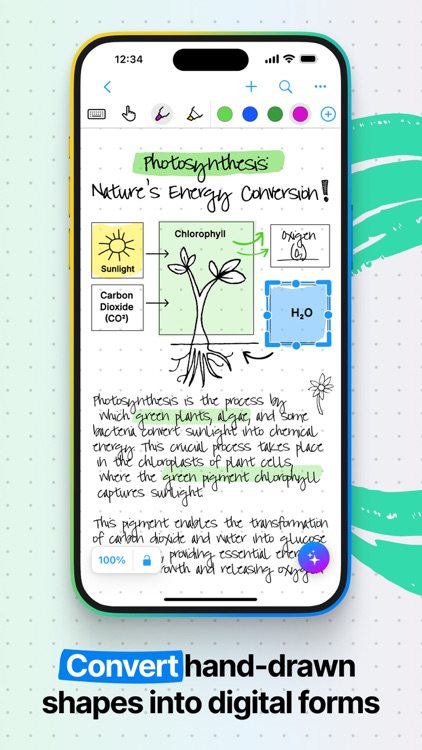 12:34
Photosynthesis:
Nature's Energy Conversion!
Sunlight
Chlorophyll
Oxigen
(O₂)
Carbon
Dioxide
(CO²)
H₂O
Photosynthesis is the process by
which green plants, algae, and some
bacteria convert sunlight into chemical
energy. This crucial process takes place
in the chloroplasts of plant cells,
where the green pigment chlorophyll
captures sunlight.
This pigment enables the transformation
of carbon dioxide and water into glucose
100% , providing essential energy
and releasing oxygen
Convert hand-drawn
shapes into digital forms